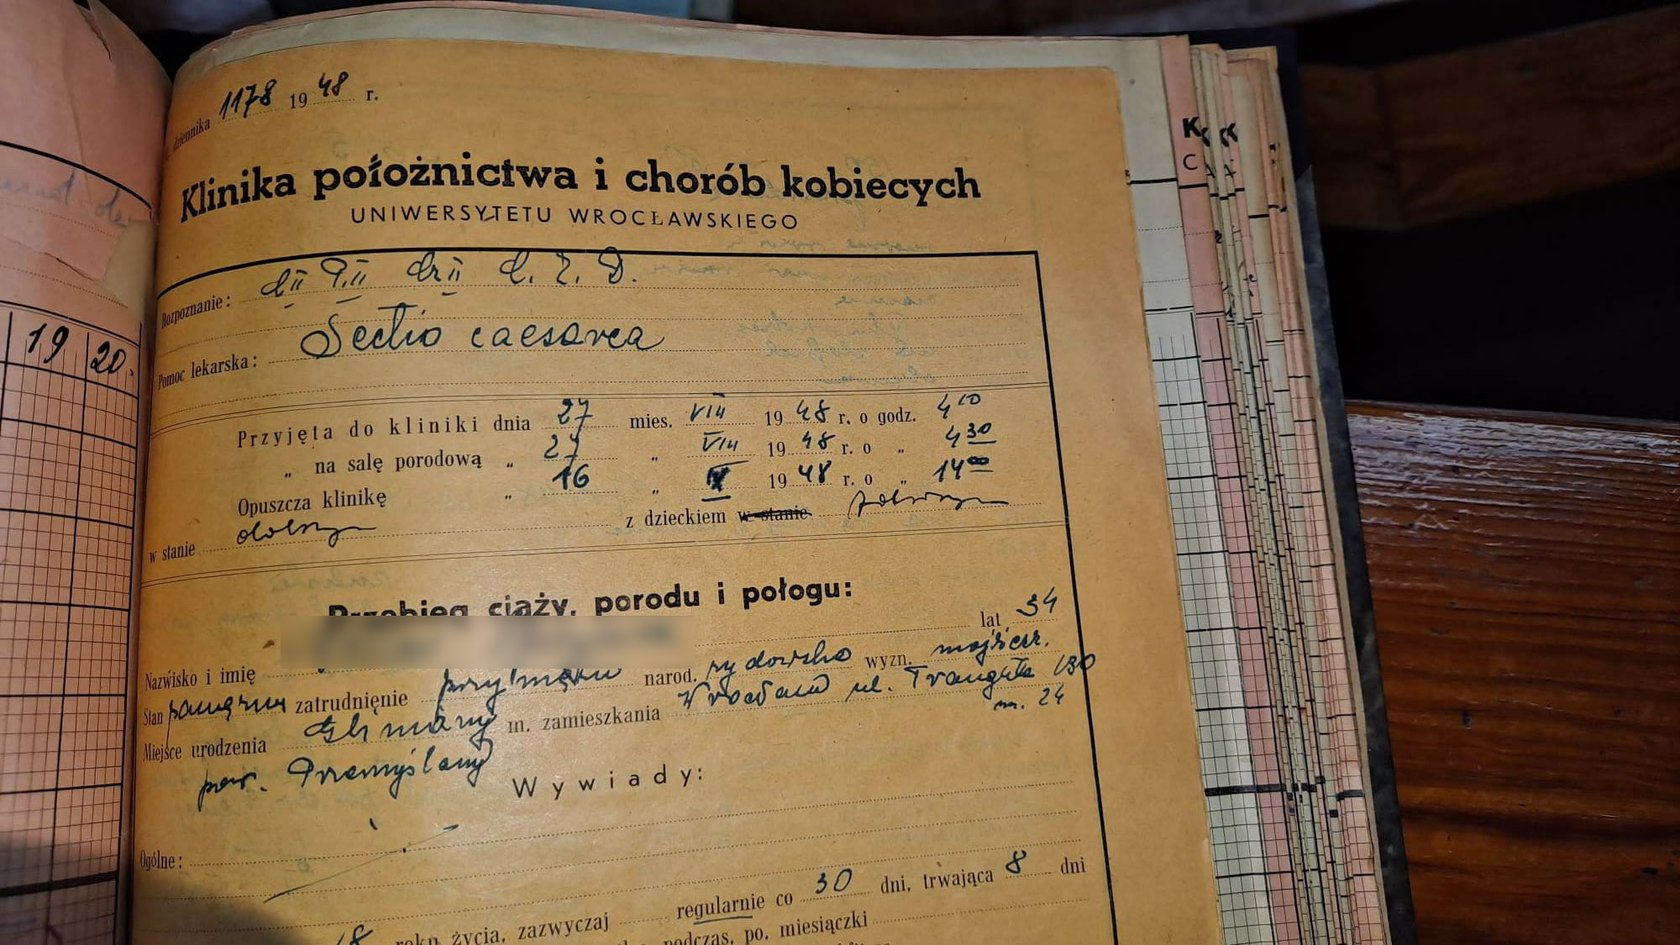 19 20
dziennika 1178 1948 r.
Klinika położnictwa i chorób kobiecych
UNIWERSYTETU WROCŁAWSKIEGO
Rozpoznanie:
Pomoc lekarska: Sectio caesarea
Przyjęta do kliniki dnia 27 mies. VIII 1948 r. o godz. 4¹⁰
„ na salę porodową „ 27 „ VIII 1948 r. o „ 4³⁰
Opuszcza klinikę „ 16 „ 1948 r. o „ 14⁰⁰
w stanie dobrym z dzieckiem w stanie
Przebieg ciąży, porodu i połogu:
Nazwisko i imię lat 34
Stan zatrudnięnie przy mężu narod. żydowska wyzn. mojżesz.
Miejsce urodzenia Gliniany m. zamieszkania Wrocław ul. Traugutta 130
m. 24
pow. Przemyślany
Wywiady:
Ogólne:
18 roku życia, zazwyczaj regularnie co 30 dni, trwająca 8 dni
podczas, po, miesiączki
K
C